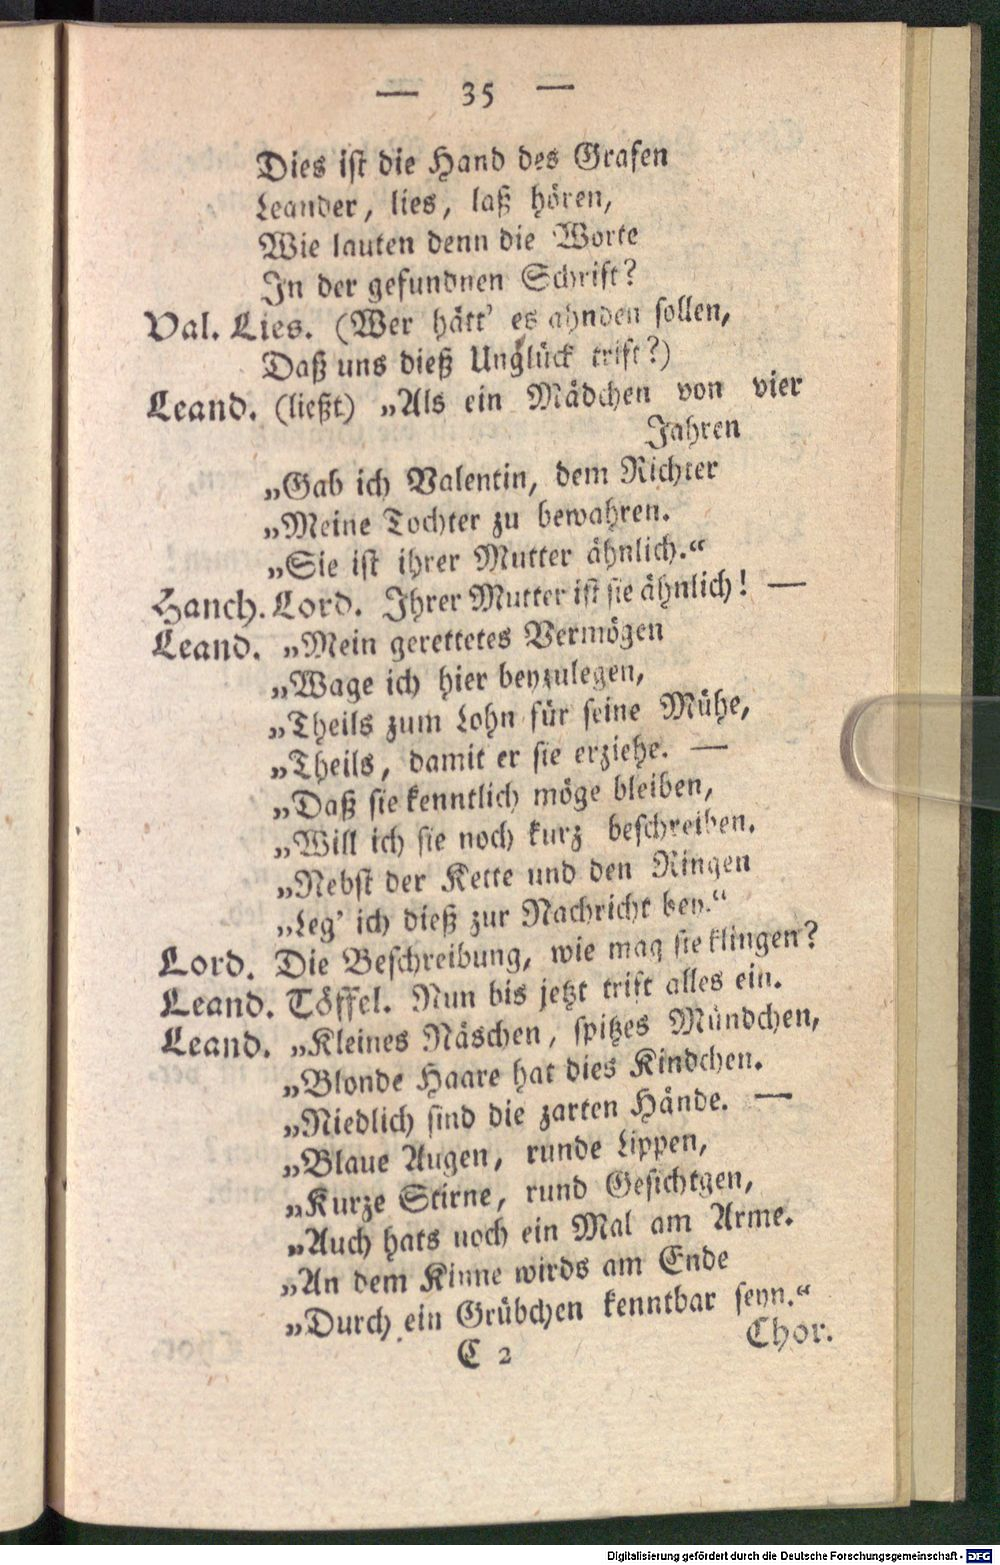 — 35 —
Dies ist die Hand des Grafen
Leander, lies, laß hören,
Wie lauten denn die Worte
In der gefundnen Schrift?
Val. Lies. (Wer hätt' es ahnden sollen,
Daß uns dieß Unglück trift?)
Leand. (ließt) „Als ein Mädchen von vier
Jahren
„Gab ich Valentin, dem Richter
„Meine Tochter zu bewahren.
„Sie ist ihrer Mutter ähnlich.“
Hanch. Lord. Ihrer Mutter ist sie ähnlich! —
Leand. „Mein gerettetes Vermögen
„Wage ich hier beyzulegen,
„Theils zum Lohn für seine Mühe,
„Theils, damit er sie erziehe. —
„Daß sie kenntlich möge bleiben,
„Will ich sie noch kurz beschreiben.
„Nebst der Kette und den Ringen
„Leg' ich dieß zur Nachricht bey.“
Lord. Die Beschreibung, wie mag sie klingen?
Leand. Töffel. Nun bis jetzt trift alles ein.
Leand. „Kleines Näschen, spitzes Mündchen,
„Blonde Haare hat dies Kindchen.
„Niedlich sind die zarten Hände. —
„Blaue Augen, runde Lippen,
„Kurze Stirne, rund Gesichtgen,
„Auch hats noch ein Mal am Arme.
„An dem Kinne wirds am Ende
„Durch ein Grübchen kenntbar seyn.“
C 2 Chor.
Digitalisierung gefördert durch die Deutsche Forschungsgemeinschaft - DFG